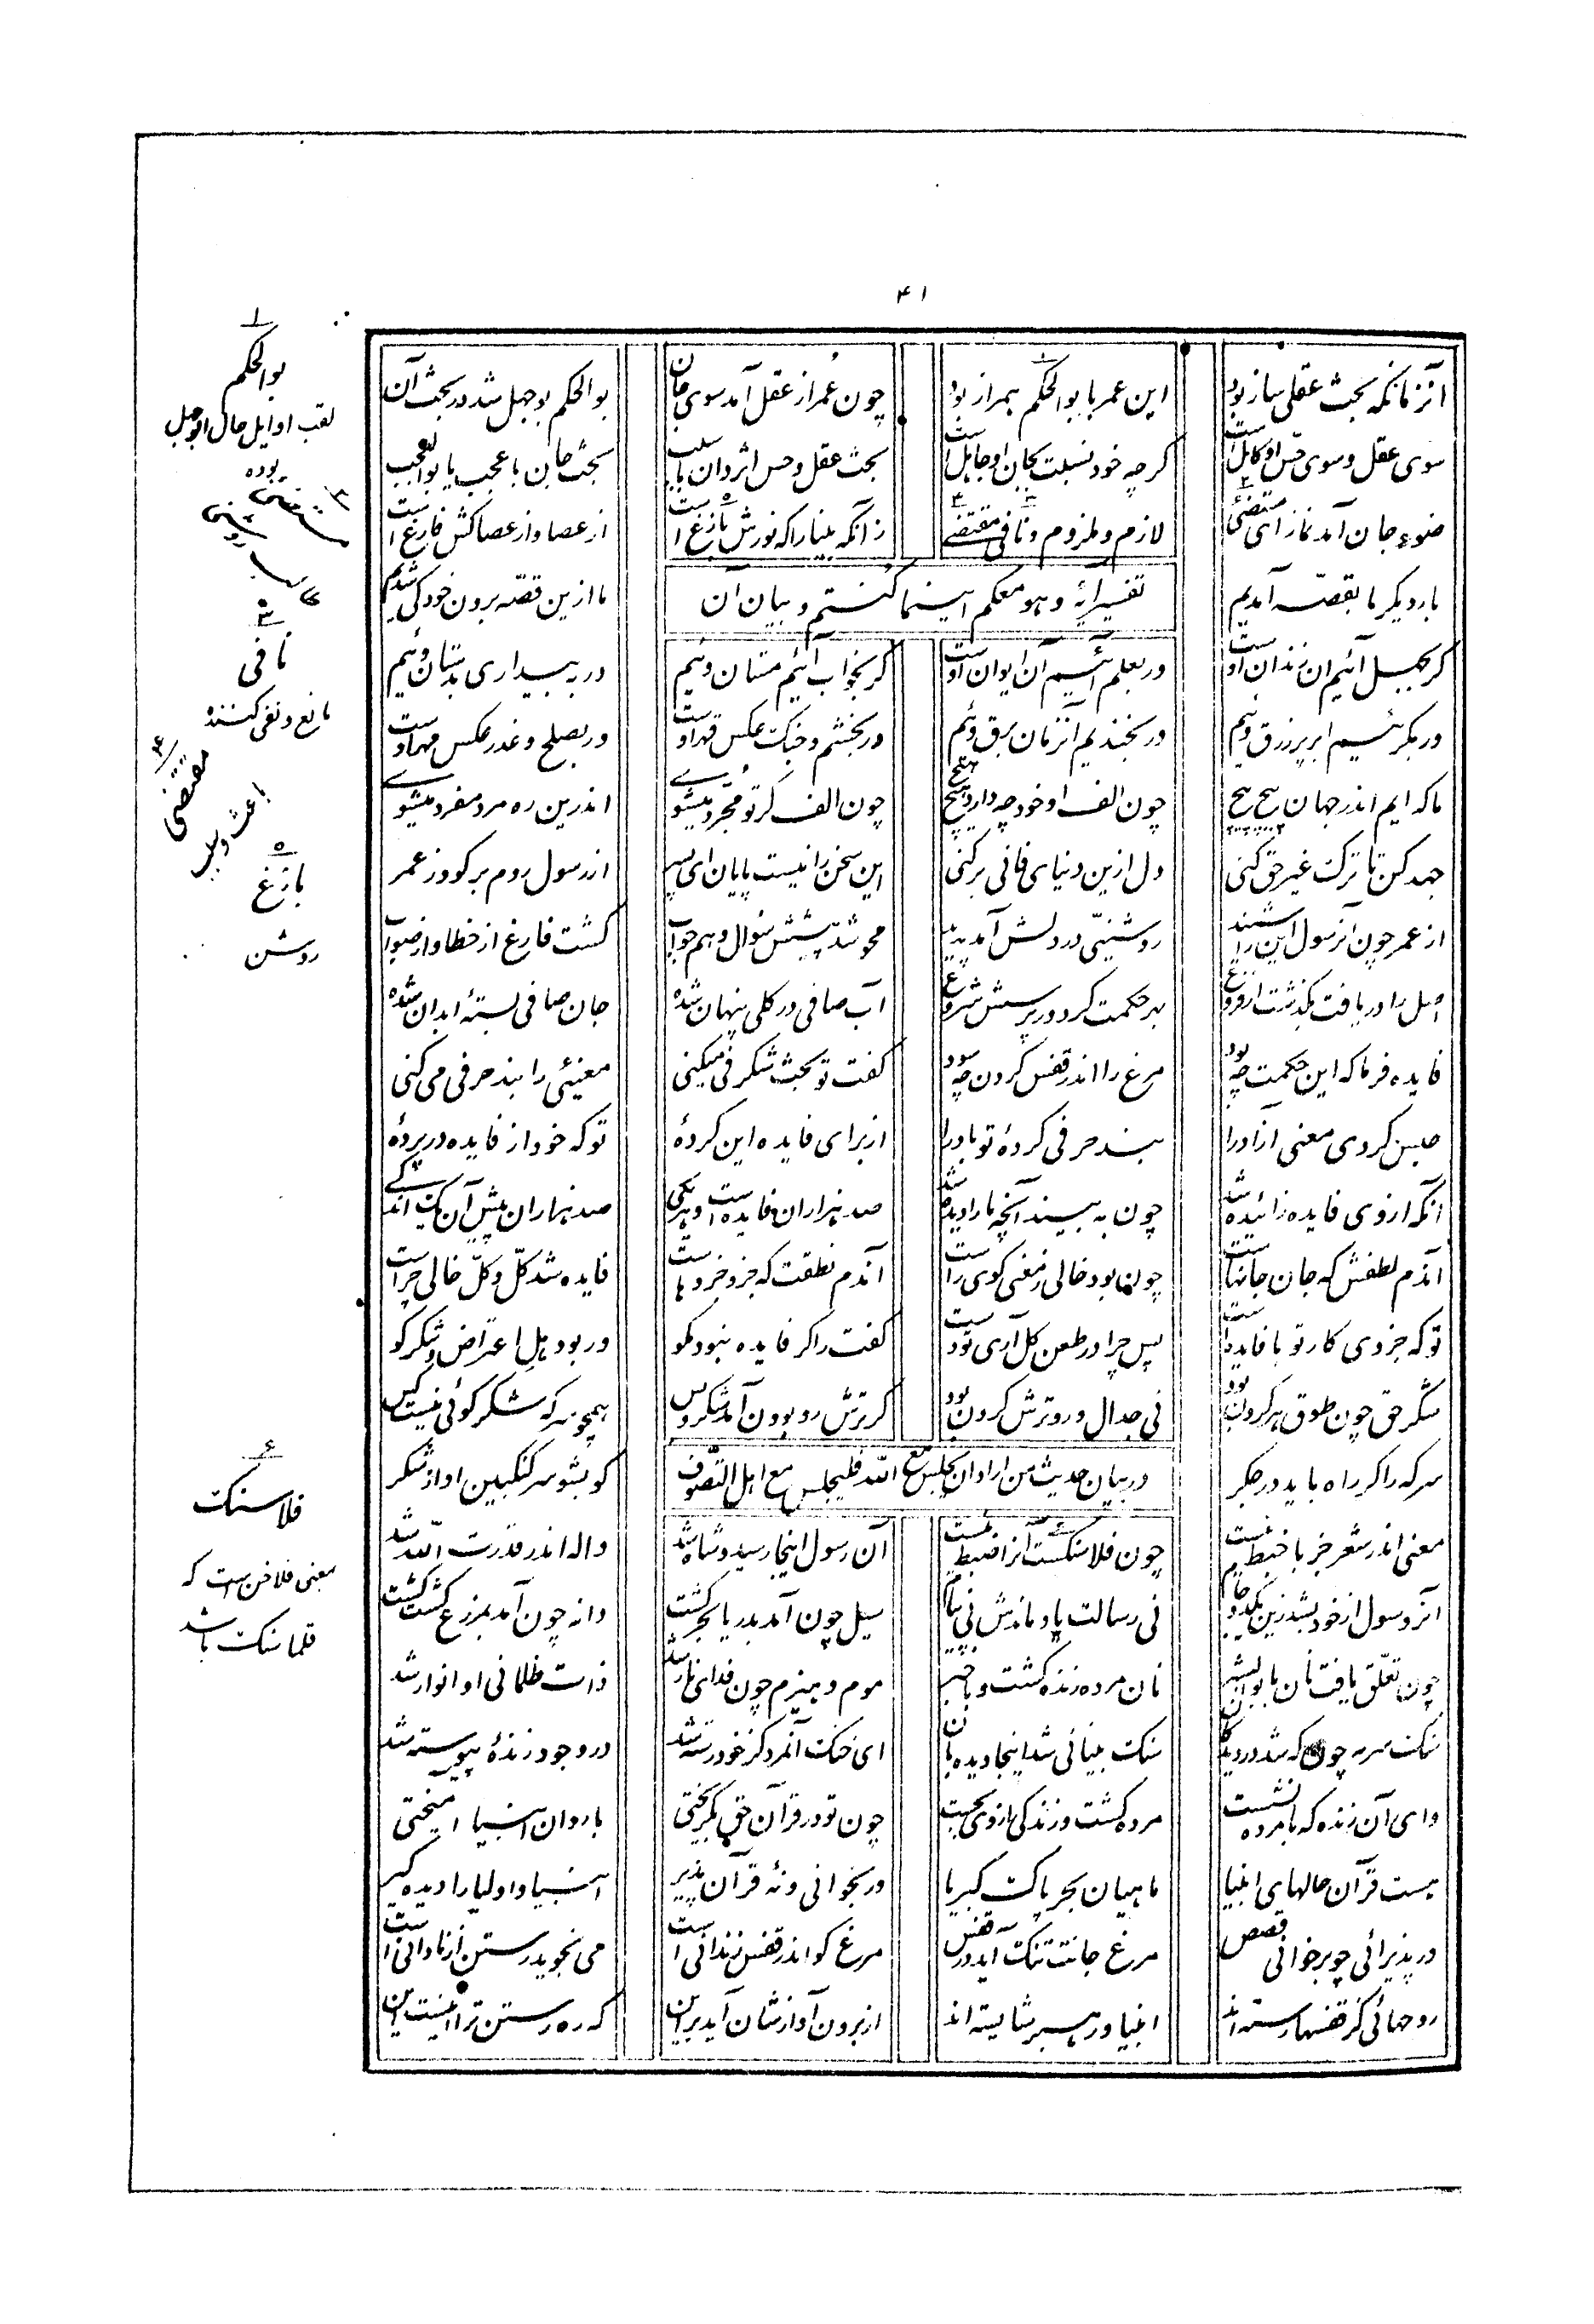 ۴۱
آنزمانکه بحث عقلی ساز بود این عمر با بوالحکم همراز بود چون عمر از عقل آمد سوی جان بوالحکم بوجهل شد در بحث آن
سوی عقل و سوی حس او کامل است گرچه خود نسبت بجان او جاهل است بحث عقل و حس اثر دان یا سبب بحث جان با عجب یا بوالعجب
ضوء جان آمد نماند ای مستضئ لازم و ملزوم و نافی مقتضے زآنکه بینا را که نورش بازغ است از عصا و از عصاکش فارغ است
بار دیگر ما بقصّه آمدیم ما ازین قصّه برون خود کی شدیم
تفسیر آیۀ و هو معکم اینما کنتم و بیان آن
گر بجهل آئیم آن زندان اوست ور بعلم آئیم آن ایوان اوست گر بخواب آئیم مستان وئیم ور به بیداری بدستان وئیم
ور بگرئیم ابر پر زرق وئیم ور بخندیم آنزمان برق وئیم ور بخشم و جنگ عکس قهر اوست ور بصلح و عذر عکس مهر اوست
ما که ایم اندر جهان پیچ پیچ چون الف او خود چه دارد هیچ هیچ چون الف گر تو مجرّد میشوے اندرین ره مرد مفرد میشوے
جهد کن تا ترک غیر حق کنی دل ازین دنیای فانی برکنی این سخن را نیست پایان ای پسر از رسول روم برگو وز عمر
از عمر چون آنرسول این را شنید روشنیّی در دلش آمد پدید محو شد پیشش سئوال و هم جواب گشت فارغ از خطا و از صواب
اصل را دریافت بگذشت از فروع بهر حکمت کرد در پرسش شروع آب صافی در گلی پنهان شده جان صافی بستۀ ابدان شده
فایده فرما که این حکمت چه بود مرغ را اندر قفس کردن چه سود گفت تو بحث شگرفی میکنی معنیئی را بند حرفی می کنی
حبس کردی معنی آزاد را بند حرفی کردۀ تو باد را از برای فایده این کردۀ تو که خود از فایده در پردۀ
آنکه از وی فایده زائیده شد چون به بیند آنچه ما را دیده شد صد هزاران فایده است و هر یکی صد هزاران پیش آن یک اندکے
آندم لطفش که جان جانهاست چون بود خالی ز معنی گوی راست آندم نطقت که جزو جزوهاست فایده شد کلّ و کلّ خالی چراست
تو که جزوی کار تو با فایده است پس چرا در طعن کل آری تو دست گفت را گر فایده نبود مگو ور بود هل اعتراض و شکر گو
شکر حق چون طوق هر گردن بود نی جدال و رو ترش کردن بود گر ترش رو بودن آمد شکر و بس همچو سرکه شکرگوئی نیست کس
سرکه را گر راه باید در جگر گو بشو سرکنگبین او از شکر
در بیان حدیث من اراد ان یجلس مع اللّه فلیجلس مع اهل التّصوّف
معنی اندر شعر جز با خبط نیست چون فلاسنگست آنرا ضبط نیست آن رسول اینجا رسید و شاه شد واله اندر قدرت اللّه شد
آنرسول از خود بشد زین یکدو جام نی رسالت یاد ماندش نی پیام سیل چون آمد بدریا بحر گشت دانه چون آمد بمزرع گشت کشت
چون تعلّق یافت نان با بوالبشر نان مرده زنده گشت و با خبر موم و هیزم چون فدای نار شد ذات ظلمانی او انوار شد
سنگ سرمه چون که شد در دیدگان سنگ بینائی شد اینجا دیده بان ای خنک آنمرد کز خود رسته شد در وجود زندۀ پیوسته شد
وای آن زنده که با مرده نشست مرده گشت و زندگی از وی بجست چون تو در قرآن حق بگریختی با روان انبیا آمیختی
هست قرآن حالهای انبیا ماهیان بحر پاک کبریا ور بخوانی و نۀ قرآن پذیر انبیا و اولیا را دیده گیر
ور پذیرائی چو برخوانی قصص مرغ جانت تنگ آید در قفس مرغ کو اندر قفس زندانی است می نجوید رستن از نادانی است
روحهائی کز قفسها رسته اند انبیا و رهبر شایسته اند از برون آوازشان آید برین که ره رستن ترا اینست این
۱
بوالحکم
لقب اوایل حال ابوجهل بوده
۳
نافی
مانع و نفی کننده
۴
مقتضی
باعث و طلب
۵
بازغ
روشن
۶
فلاسنگ
بمعنی فلاخن است که
قلماسنگ باشد